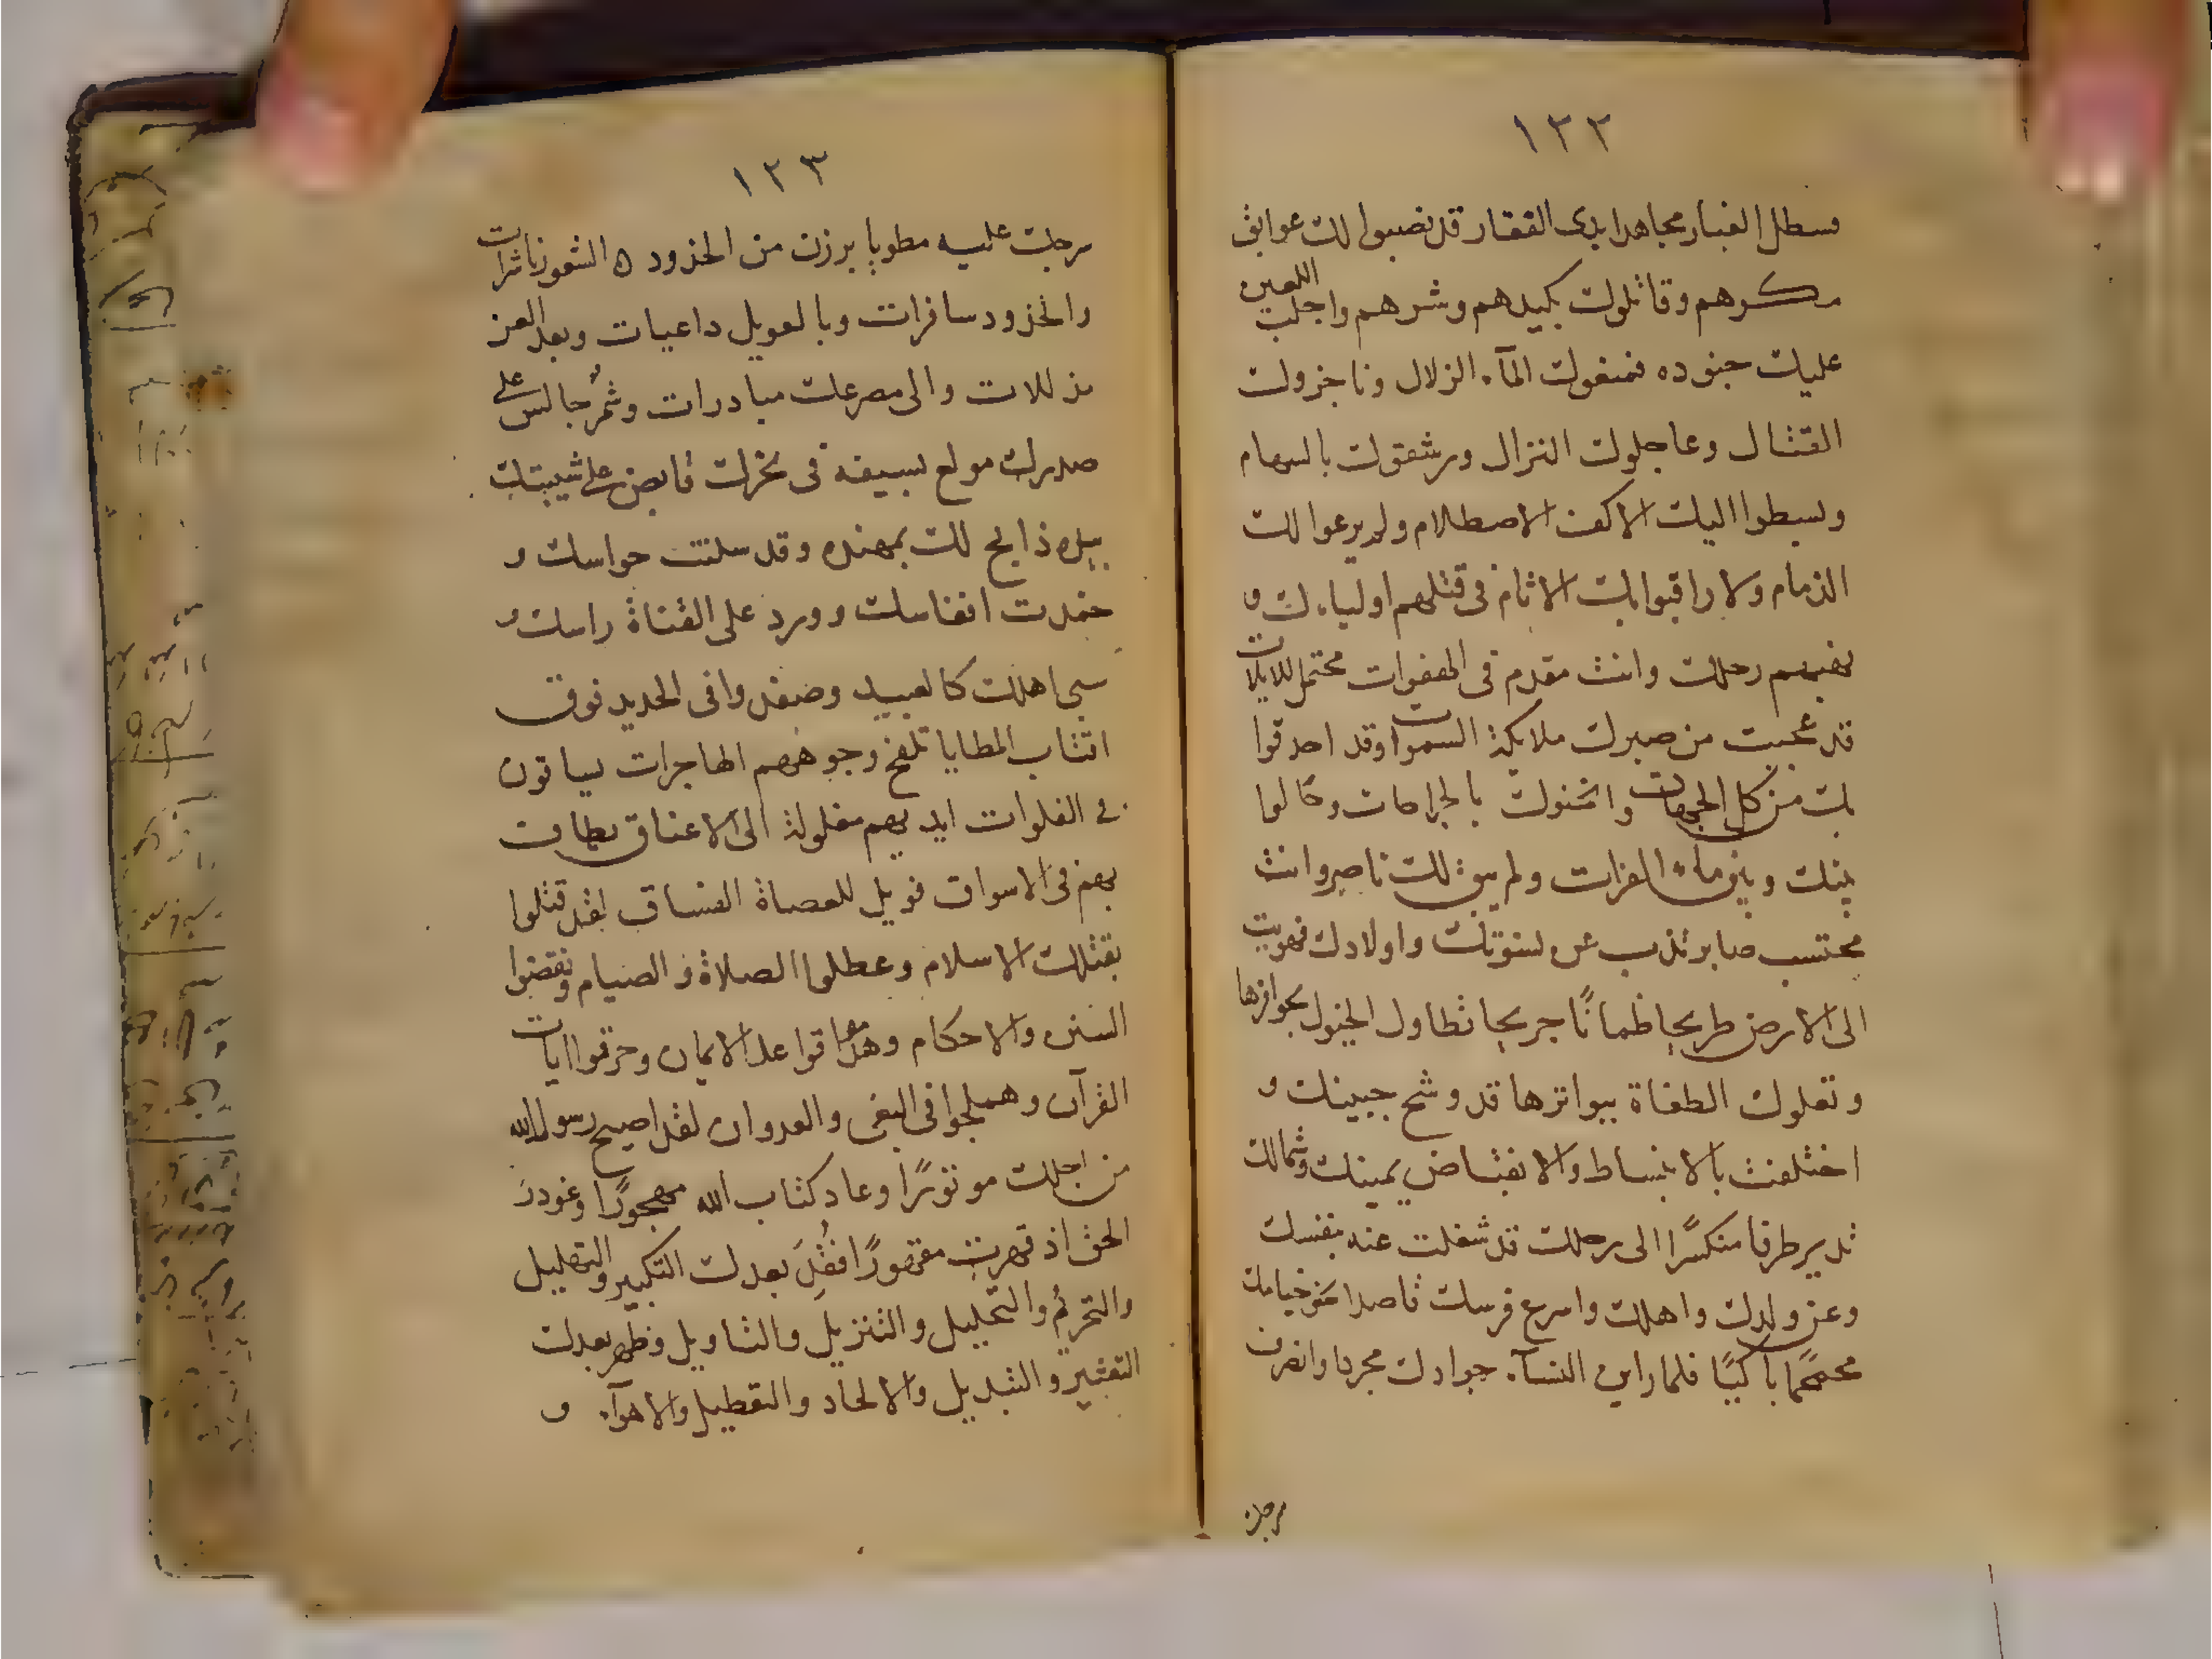 ١٢٢
قسطل الغبار مجاهدا بذى الفقار قد نصبوا لك غوايل
مكرهم وقاتلوك بكيدهم وشرهم واجلب اللعين
عليك جنوده فمنعوك المآء الزلال وناجزوك
القتال وعاجلوك النزال ورشقوك بالسهام
وبسطوا اليك الاكف الاصطلام ولم يرعوا لك
الذمام ولا راقبوا بك الاثام فى قتلهم اولياءك و
نهبهم رحلك وانت مقدم فى الهفوات محتمل للاذيات
قد عجبت من صبرك ملايكة السموات وقد احدقوا
بك من كل الجهات واثخنوك بالجراحات وحالوا
بينك وبين ماء الفرات ولم يبق لك ناصر وانت
محتسب صابر تذب عن نسوتك واولادك فهويت
الى الارض طريحا ظمانًا جريحا تطاول الخيول بحوافرها
وتعلوك الطغاة ببواترها قد وشح جبينك و
اختلفت بالانبساط والانقباض يمينك وشمالك
تدير طرفا منكسرًا الى رحلك قد شغلت عنه بنفسك
وعن ولدك واهلك واسرع فرسك قاصدا نحو خيامك
محمحمًا باكيًا فلما راين النسآء جوادك مخزيا وانصرف
سرجك
١٢٣
سرجك عليه ملويا برزن من الخدور ه الشعور ناشرات
والخدود سافرات وبالعويل داعيات وبعد العز
مذللات والى مصرعك مبادرات وشمر جالس على
صدرك مولع بسيفه فى نحرك قابض على شيبتك
بيده ذابح لك بمهنده وقد سكنت حواسك و
خمدت انفاسك وورد على القناة راسك و
سبى اهلك كالعبيد وصفدوا فى الحديد فوق
اقتاب المطايا تلفح وجوههم الهاجرات يساقون
فى الفلوات ايديهم مغلولة الى الاعناق يطاف
بهم فى الاسواق فويل للعصاة الفساق لقد قتلوا
بقتلك الاسلام وعطلوا الصلاة و الصيام ونقضوا
السنن والاحكام وهدموا قواعد الايمان وحرفوا ايات
القرآن وهملجوا فى البغى والعدوان لقد اصبح رسول الله
من اجلك موتورًا وعاد كتاب الله مهجورًا وغودر
الحق اذ قهرت مقهورًا فقُقِدَ بعدك التكبير والتهليل
والتحريم والتحليل والتنزيل والتاويل وظهر بعدك
التغيير والتبديل والالحاد والتعطيل والاهوآء و